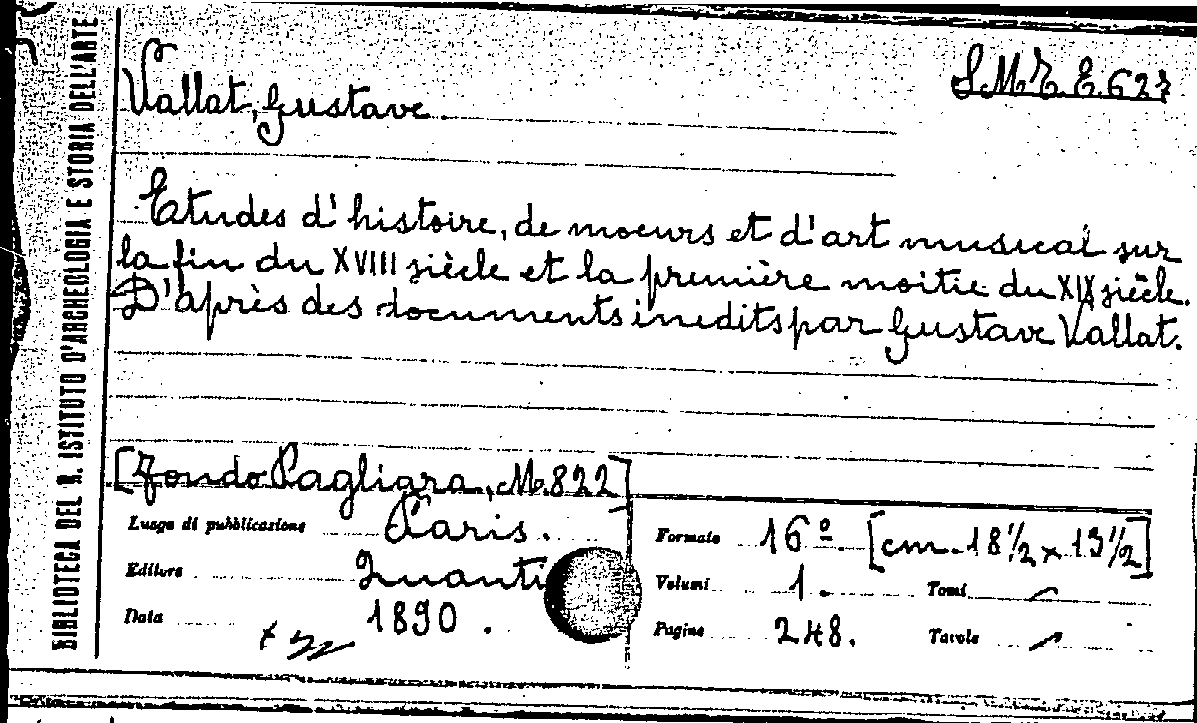 BIBLIOTECA DEL R. ISTITUTO D'ARCHEOLOGIA E STORIA DELL'ARTE
Vallat, Gustave.
E.627
Etudes d'histoire, de moeurs et d'art musical sur
la fin du XVIII siècle et la première moitie du XIX siècle.
D'après des documents inedits par Gustave Vallat.
[Fondo Pagliara, M.822]
Luogo di pubblicazione Paris.
Editore Quanti
Data 1890.
Formato 16º. [cm. 18½ x 13½]
Volumi 1. Tomi
Pagine 248. Tavole